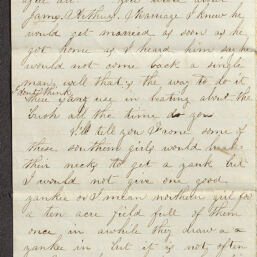 James Arthur. A Marriage I knew he
would get married as soon as he
got home as I heard him say he
would not come back a single
man, well that's the way to do it
dont think
there is any use in beating about the
bush all the time do you
I'll tell you some of
these southern girls would
their necks to get a yank but
I would not give one good
yankee or I mean northern girl for
a ten acre field full of them
once in awhile they draw a
yankee in but it is not often